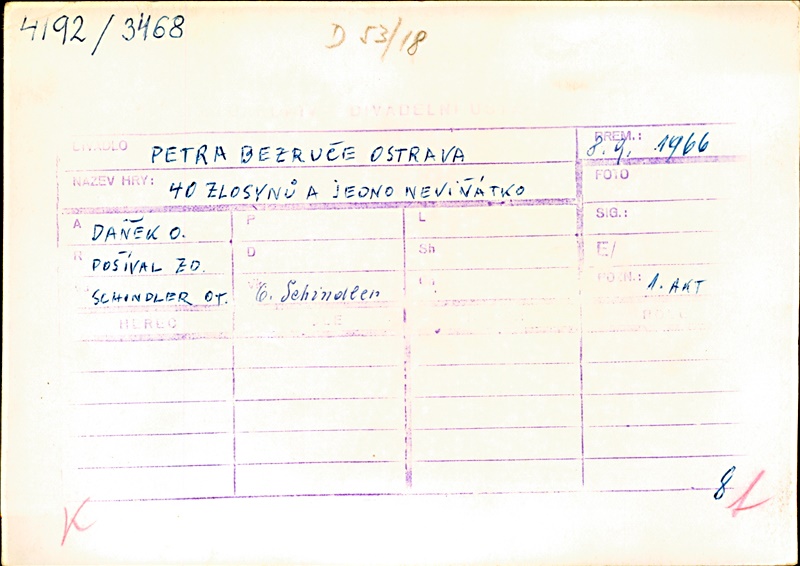 4192/3468
D 53/18
DIVADELNÍ
DIVADLO PETRA BEZRUČE OSTRAVA PREM.: 8.9. 1966
NÁZEV HRY: 40 ZLOSYNŮ A JEDNO NEVIŇÁTKO FOTO
A DANĚK O. P L SIG.:
R POŠÍVAL ZD. D Sh E/
SCHINDLER OT. O. Schindler POZN.: 1. AKT
HEREC
8
K